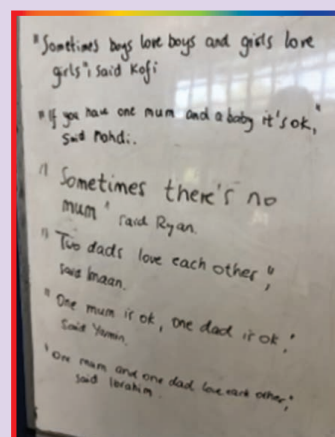 "Sometimes boys love boys and girls love
girls", said Kofi
"If you have one mum and a baby it's ok,"
Said Mohdi.
"Sometimes there's no
mum" said Ryan.
"Two dads love each other,"
Said Imaan.
"One mum is ok, one dad is ok."
Said Yasmin.
"One mum and one dad love each other,"
said Ibrahim.